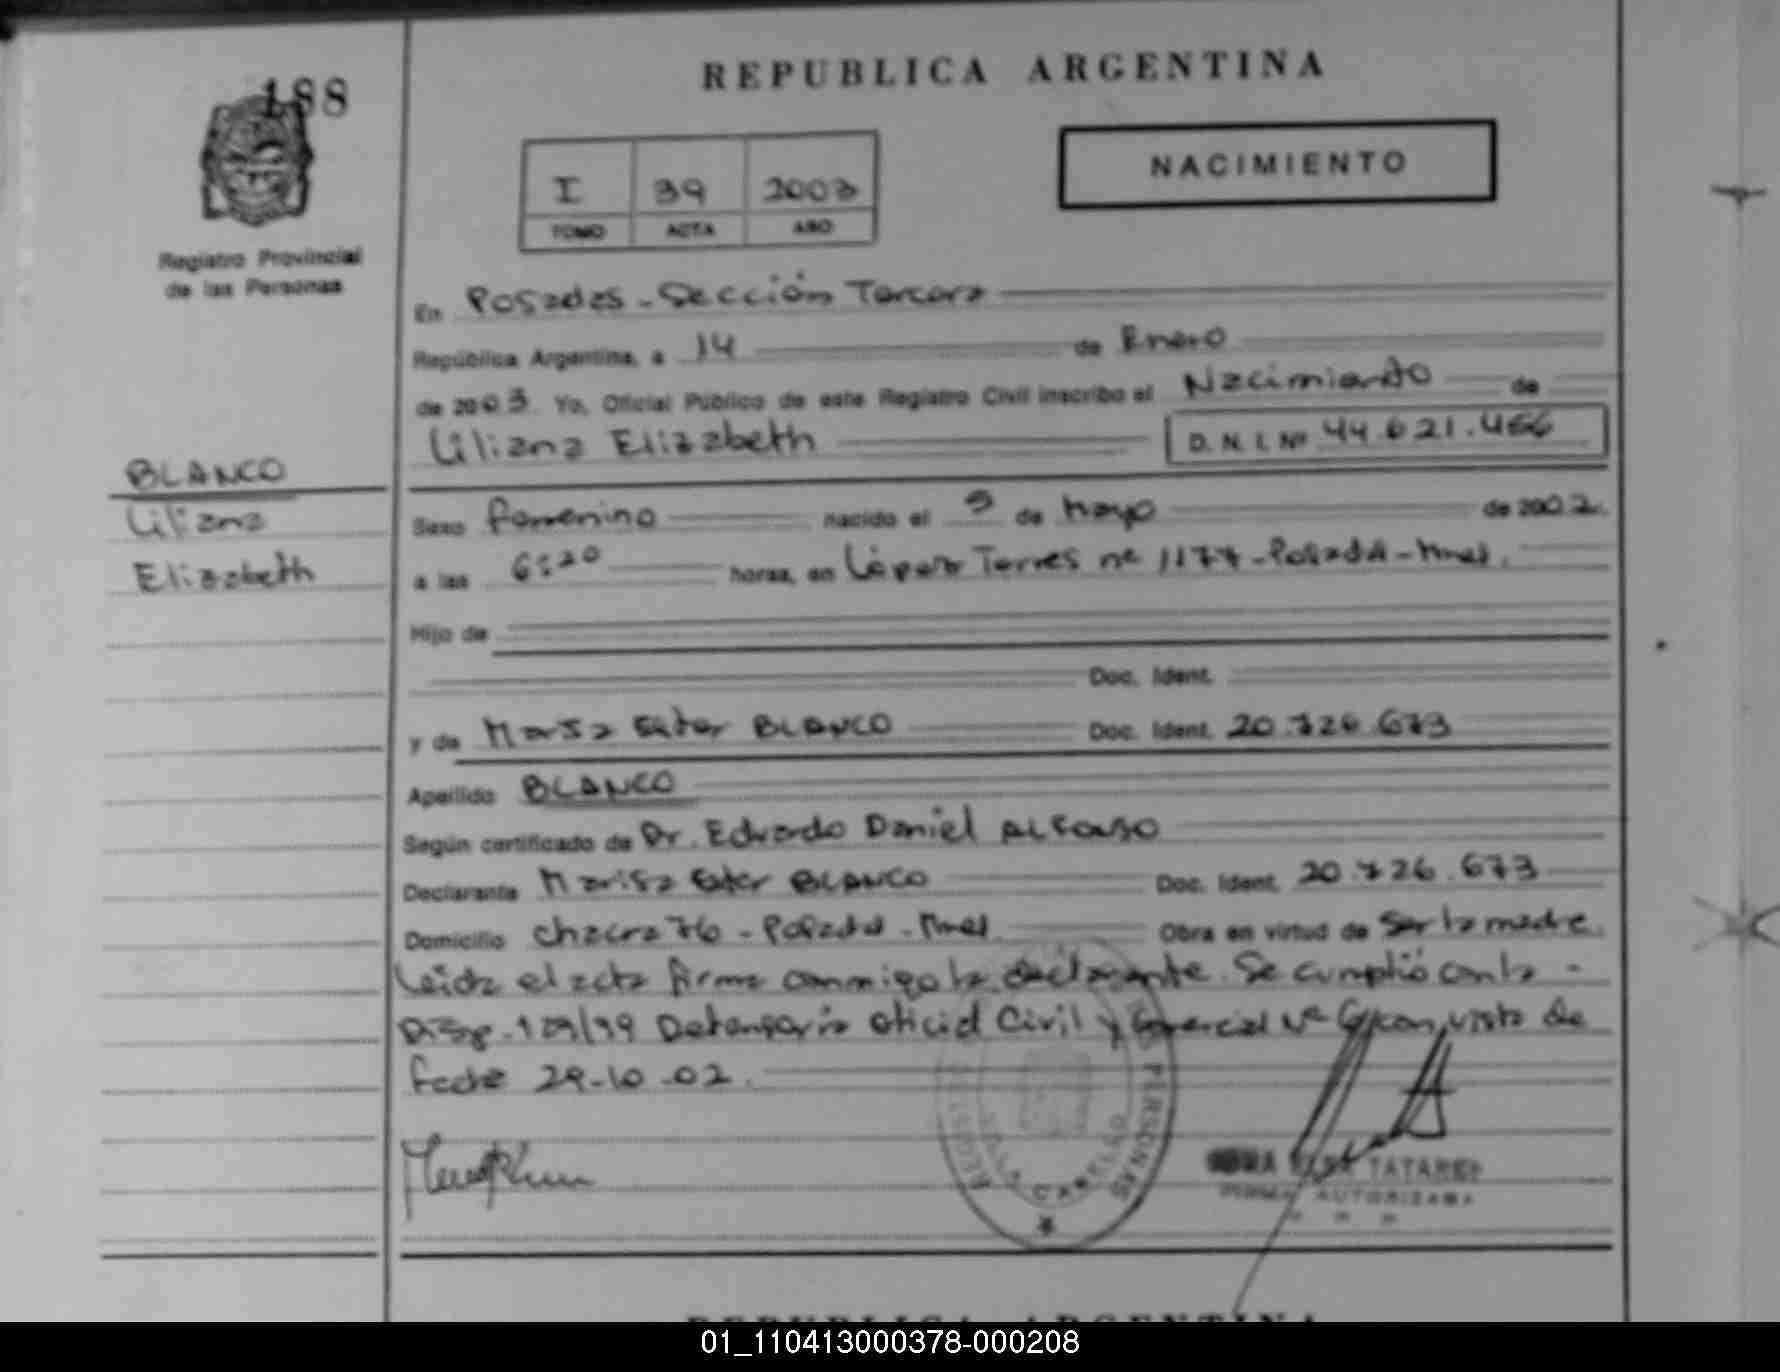 188
REPUBLICA ARGENTINA
NACIMIENTO
I 39 2003
TOMO ACTA AÑO
Registro Provincial
de las Personas
En Posadas - Sección Tercera
República Argentina, a 14 de Enero
de 2003. Yo, Oficial Público de este Registro Civil inscribo el Nacimiento de
Liliana Elizabeth D. N. I. Nº 44.621.456
BLANCO
Liliana
Elizabeth
Sexo femenino nacido el 9 de Mayo de 2002.
a las 6:20 horas, en López Torres nº 1177 - Posadas - Mnes.
Hijo de
Doc. Ident.
y de Marisa Ester BLANCO Doc. Ident. 20.726.673
Apellido BLANCO
Según certificado de Dr. Eduardo Daniel ALFONSO
Declarante Marisa Ester BLANCO Doc. Ident. 20.726.673
Domicilio Chacra 76 - Posadas - Mnes Obra en virtud de ser la madre.
Leída el acta firma conmigo la declarante. Se cumplió con la -
Disp. 129/99 Defensoría Oficial Civil y Comercial Nº con vista de
fecha 29-10-02.
PERSONAS
CABELLO
TATAREN
FIRMA AUTORIZADA
REPUBLICA ARGENTINA
01_110413000378-000208